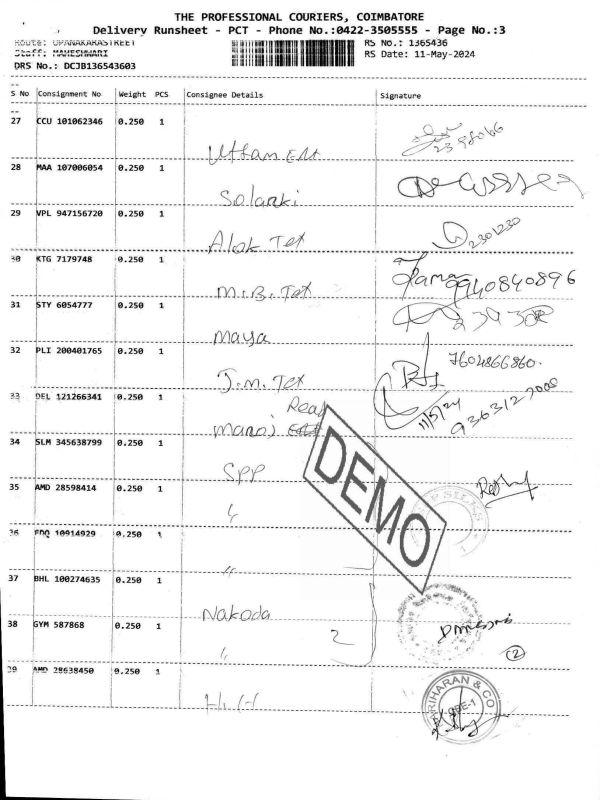 THE PROFESSIONAL COURIERS, COIMBATORE
Delivery Runsheet - PCT - Phone No.:0422-3505555 - Page No.:3
Route: UPANAKARASTREET
RS No.: 1365436
Staff: MAHESHWARI
RS Date: 11-May-2024
DRS No.: DCJB136543603
S No Consignment No Weight PCS Consignee Details Signature
27 CCU 101062346 0.250 1
Uttam Ent
28 MAA 107006054 0.250 1
Solanki
29 VPL 947156720 0.250 1
Alok Tex 2301230
30 KTG 7179748 0.250 1
M.B. Tex 9940840896
31 STY 6054777 0.250 1
Maya
32 PLI 200401765 0.250 1 7604866860.
J.M. Tex
33 DEL 121266341 0.250 1
Manoj 11/5/24
34 SLM 345638799 0.250 1
SPP
35 AMD 28598414 0.250 1
"
36 0.250 1
DEMO
"
37 BHL 100274635 0.250 1
Nakoda
38 GYM 587868 0.250 1 2
" 2
39 AMD 28638450 0.250 1
HARIHARAN & CO